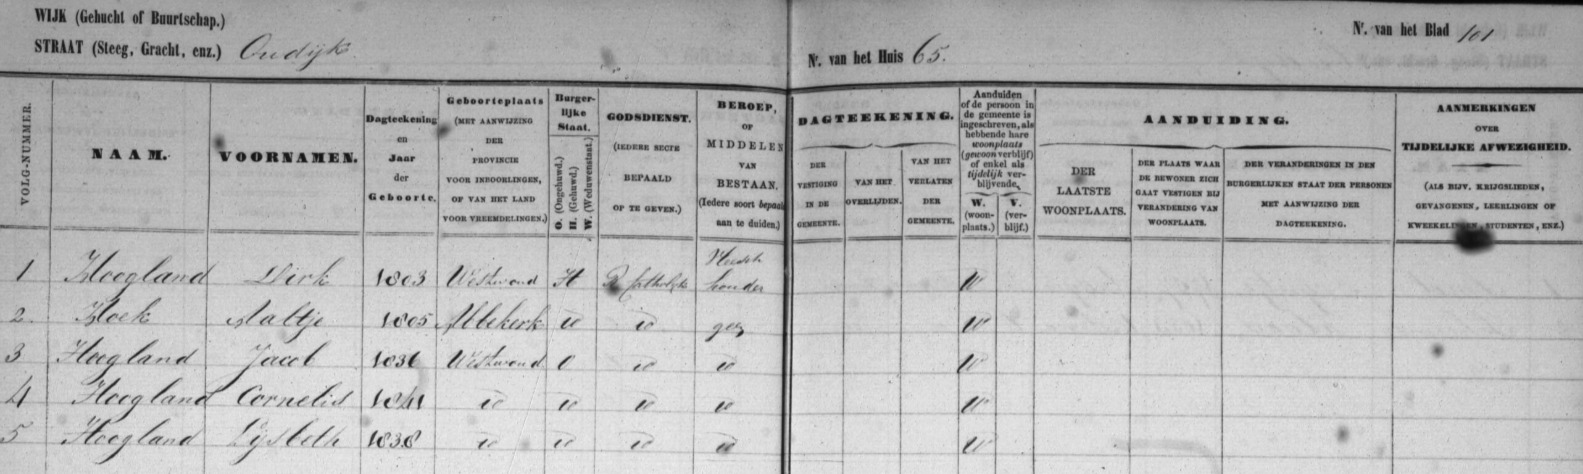 WIJK (Gehucht of Buurtschap.)
STRAAT (Steeg, Gracht, enz.) Oudijk
Nr. van het Huis 65.
Nr. van het Blad 101
VOLG-NUMMER.
NAAM.
VOORNAMEN.
Dagteekening
en
Jaar
der
Geboorte.
Geboorteplaats
(MET AANWIJZING
DER
PROVINCIE
VOOR INBOORLINGEN,
OF VAN HET LAND
VOOR VREEMDELINGEN.)
Burger-
lijke
Staat.
O. (Ongehuwd.)
H. (Gehuwd.)
W. (Weduwenstaat.)
GODSDIENST.
(IEDERE SECTE
BEPAALD
OP TE GEVEN.)
BEROEP,
OF
MIDDELEN
VAN
BESTAAN.
(Iedere soort bepaald
aan te duiden.)
DAGTEEKENING.
DER
VESTIGING
IN DE
GEMEENTE.
VAN HET
OVERLIJDEN.
VAN HET
VERLATEN
DER
GEMEENTE.
Aanduiden
of de persoon in
de gemeente is
ingeschreven, als
hebbende hare
woonplaats
(gewoon verblijf)
of enkel als
tijdelijk ver-
blijvende.
W.
(woon-
plaats.)
V.
(ver-
blijf.)
AANDUIDING.
DER
LAATSTE
WOONPLAATS.
DER PLAATS WAAR
DE BEWONER ZICH
GAAT VESTIGEN BIJ
VERANDERING VAN
WOONPLAATS.
DER VERANDERINGEN IN DEN
BURGERLIJKEN STAAT DER PERSONEN
MET AANWIJZING DER
DAGTEEKENING.
AANMERKINGEN
OVER
TIJDELIJKE AFWEZIGHEID.
(ALS BIJV. KRIJGSLIEDEN,
GEVANGENEN, LEERLINGEN OF
KWEEKELINGEN, STUDENTEN, ENZ.)
1 Hoogland Dirk 1803 Westwoud H R Catholijk Veehouder W
2. Koek Aaltje 1805 Abbekerk id id geen W
3 Hoogland Jacob 1836 Westwoud O id id W
4 Hoogland Cornelis 1841 id id id id W
5 Hoogland Lijsbeth 1838 id id id id W